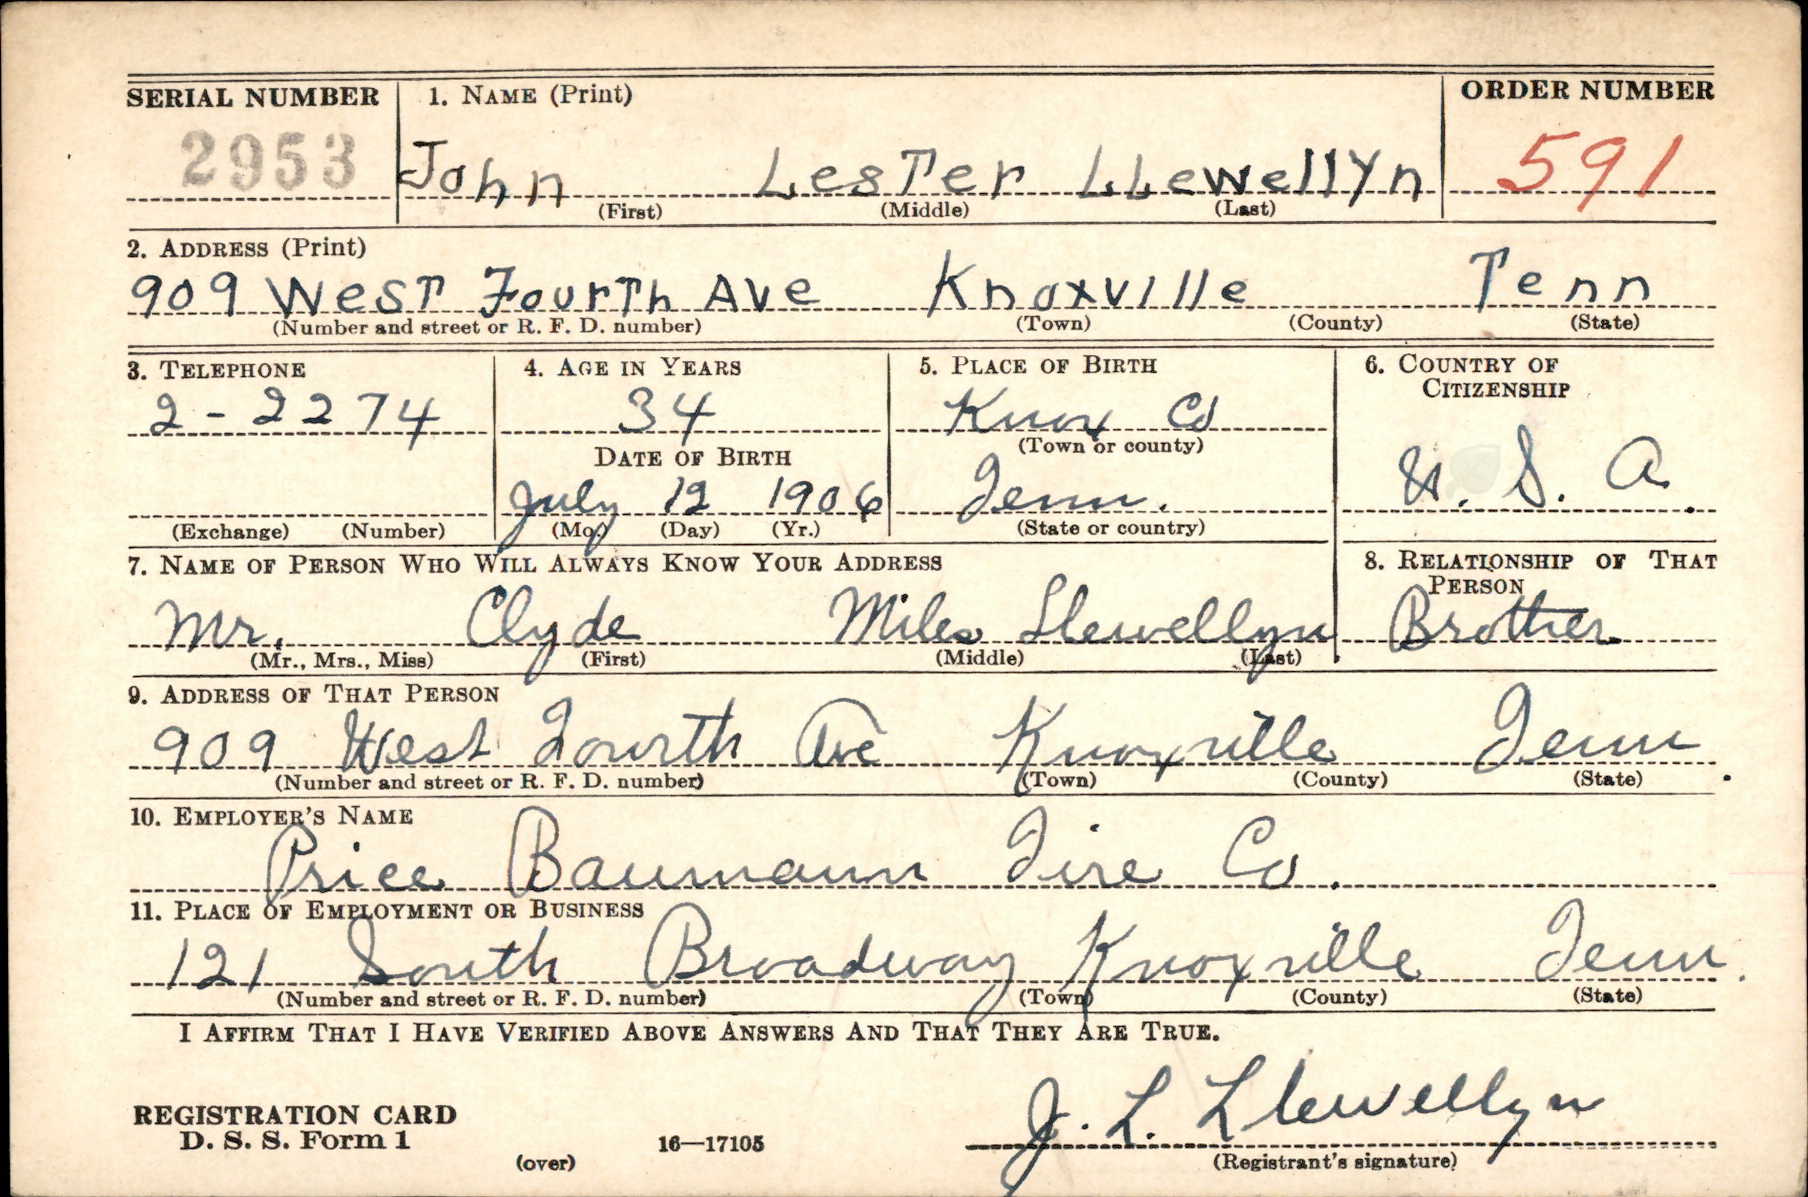 SERIAL NUMBER 1. NAME (Print) ORDER NUMBER
2953 John Lester Llewellyn 591
(First) (Middle) (Last)
2. ADDRESS (Print)
909 West Fourth Ave Knoxville Tenn
(Number and street or R. F. D. number) (Town) (County) (State)
3. TELEPHONE 4. AGE IN YEARS 5. PLACE OF BIRTH 6. COUNTRY OF
CITIZENSHIP
2-2274 34 Knox Co
DATE OF BIRTH (Town or county)
July 12 1906 Tenn. U. S. A.
(Exchange) (Number) (Mo.) (Day) (Yr.) (State or country)
7. NAME OF PERSON WHO WILL ALWAYS KNOW YOUR ADDRESS 8. RELATIONSHIP OF THAT
PERSON
Mr. Clyde Miles Llewellyn Brother
(Mr., Mrs., Miss) (First) (Middle) (Last)
9. ADDRESS OF THAT PERSON
909 West Fourth Ave Knoxville Tenn
(Number and street or R. F. D. number) (Town) (County) (State)
10. EMPLOYER'S NAME
Price Baumann Tire Co.
11. PLACE OF EMPLOYMENT OR BUSINESS
121 South Broadway Knoxville Tenn.
(Number and street or R. F. D. number) (Town) (County) (State)
I AFFIRM THAT I HAVE VERIFIED ABOVE ANSWERS AND THAT THEY ARE TRUE.
J. L. Llewellyn
REGISTRATION CARD
D. S. S. Form 1 16—17105
(over) (Registrant's signature)